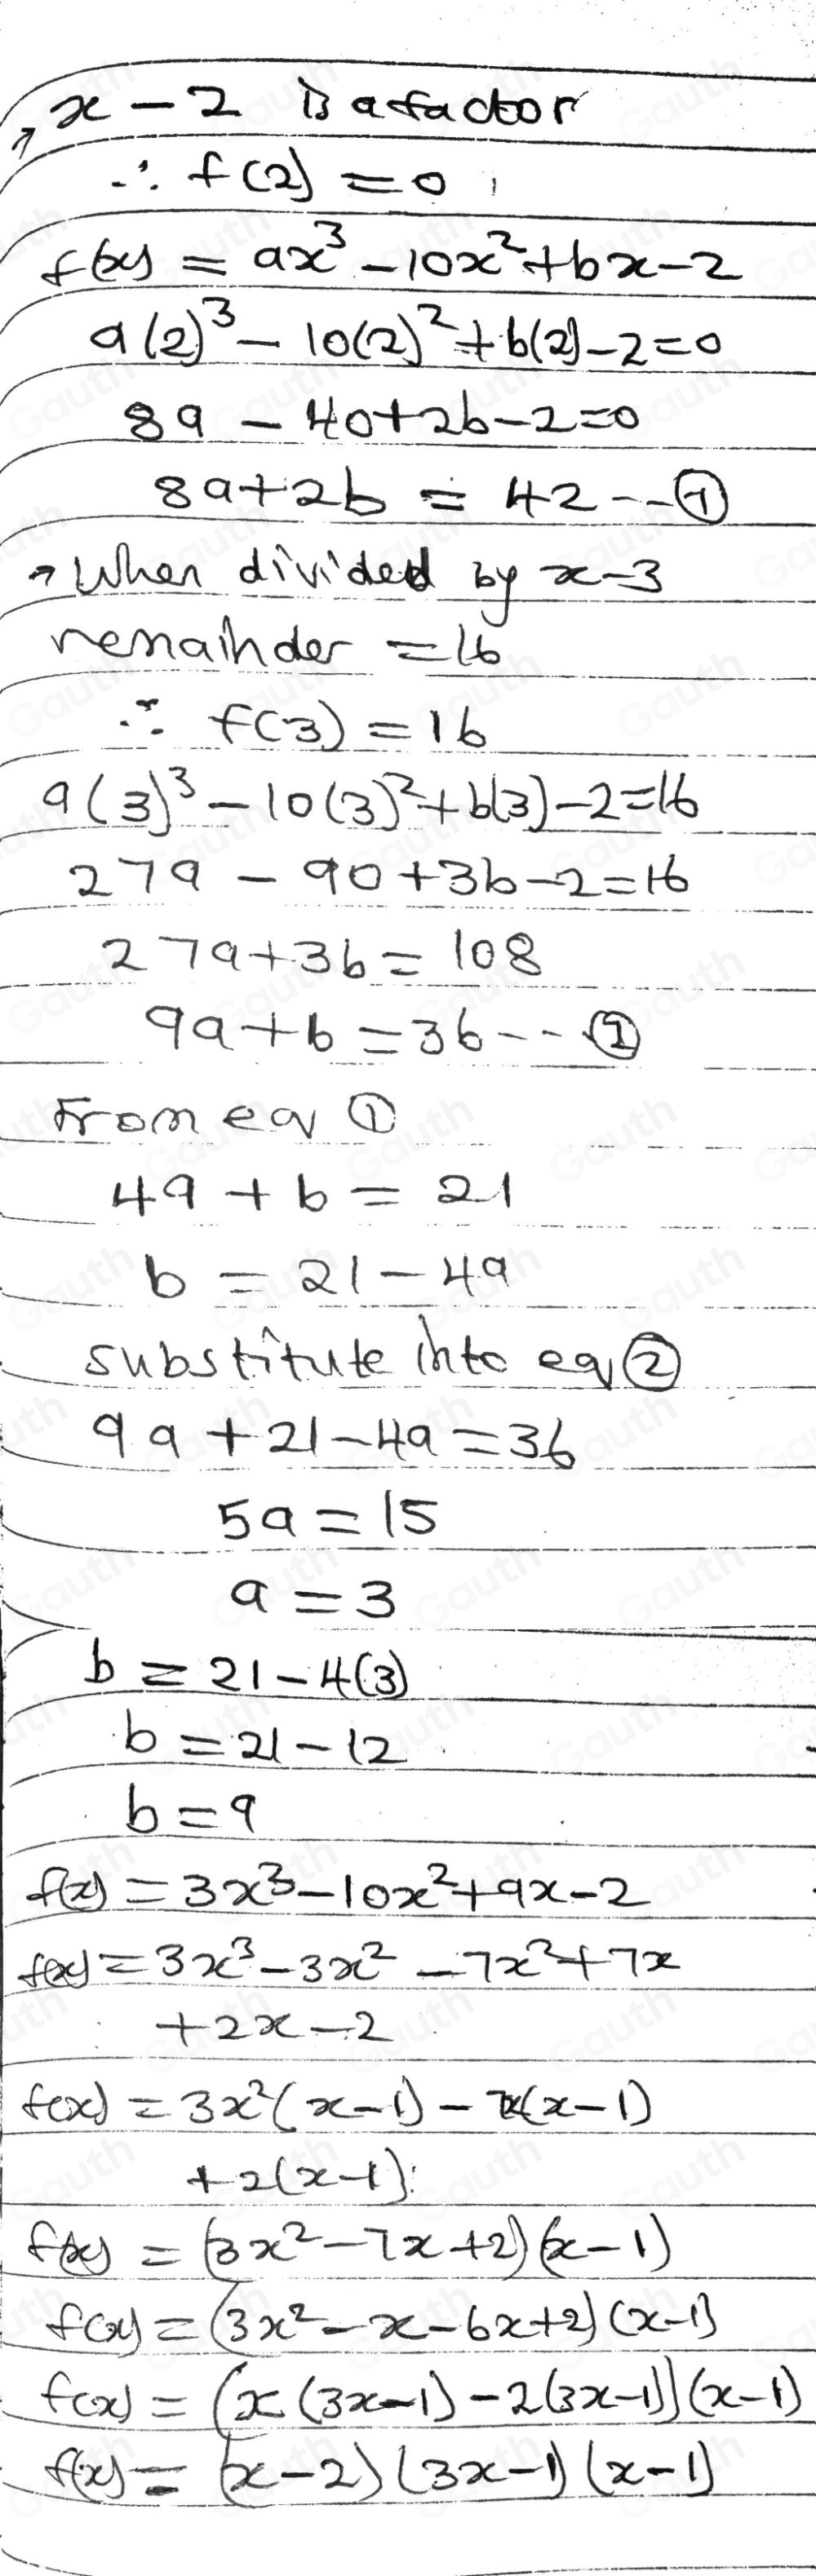 → x - 2 is a factor
∴ f(2) = 0
f(x) = ax³ - 10x² + bx - 2
a(2)³ - 10(2)² + b(2) - 2 = 0
8a - 40 + 2b - 2 = 0
8a + 2b = 42 -- ①
→ When divided by x - 3
remainder = 16
∴ f(3) = 16
a(3)³ - 10(3)² + b(3) - 2 = 16
27a - 90 + 3b - 2 = 16
27a + 3b = 108
9a + b = 36 -- ②
From eq ①
4a + b = 21
b = 21 - 4a
substitute into eq ②
9a + 21 - 4a = 36
5a = 15
a = 3
b = 21 - 4(3)
b = 21 - 12
b = 9
f(x) = 3x³ - 10x² + 9x - 2
f(x) = 3x³ - 3x² - 7x² + 7x
+ 2x - 2
f(x) = 3x²(x - 1) - 7x(x - 1)
+ 2(x - 1)
f(x) = (3x² - 7x + 2)(x - 1)
f(x) = (3x² - x - 6x + 2)(x - 1)
f(x) = (x(3x - 1) - 2(3x - 1))(x - 1)
f(x) = (x - 2)(3x - 1)(x - 1)